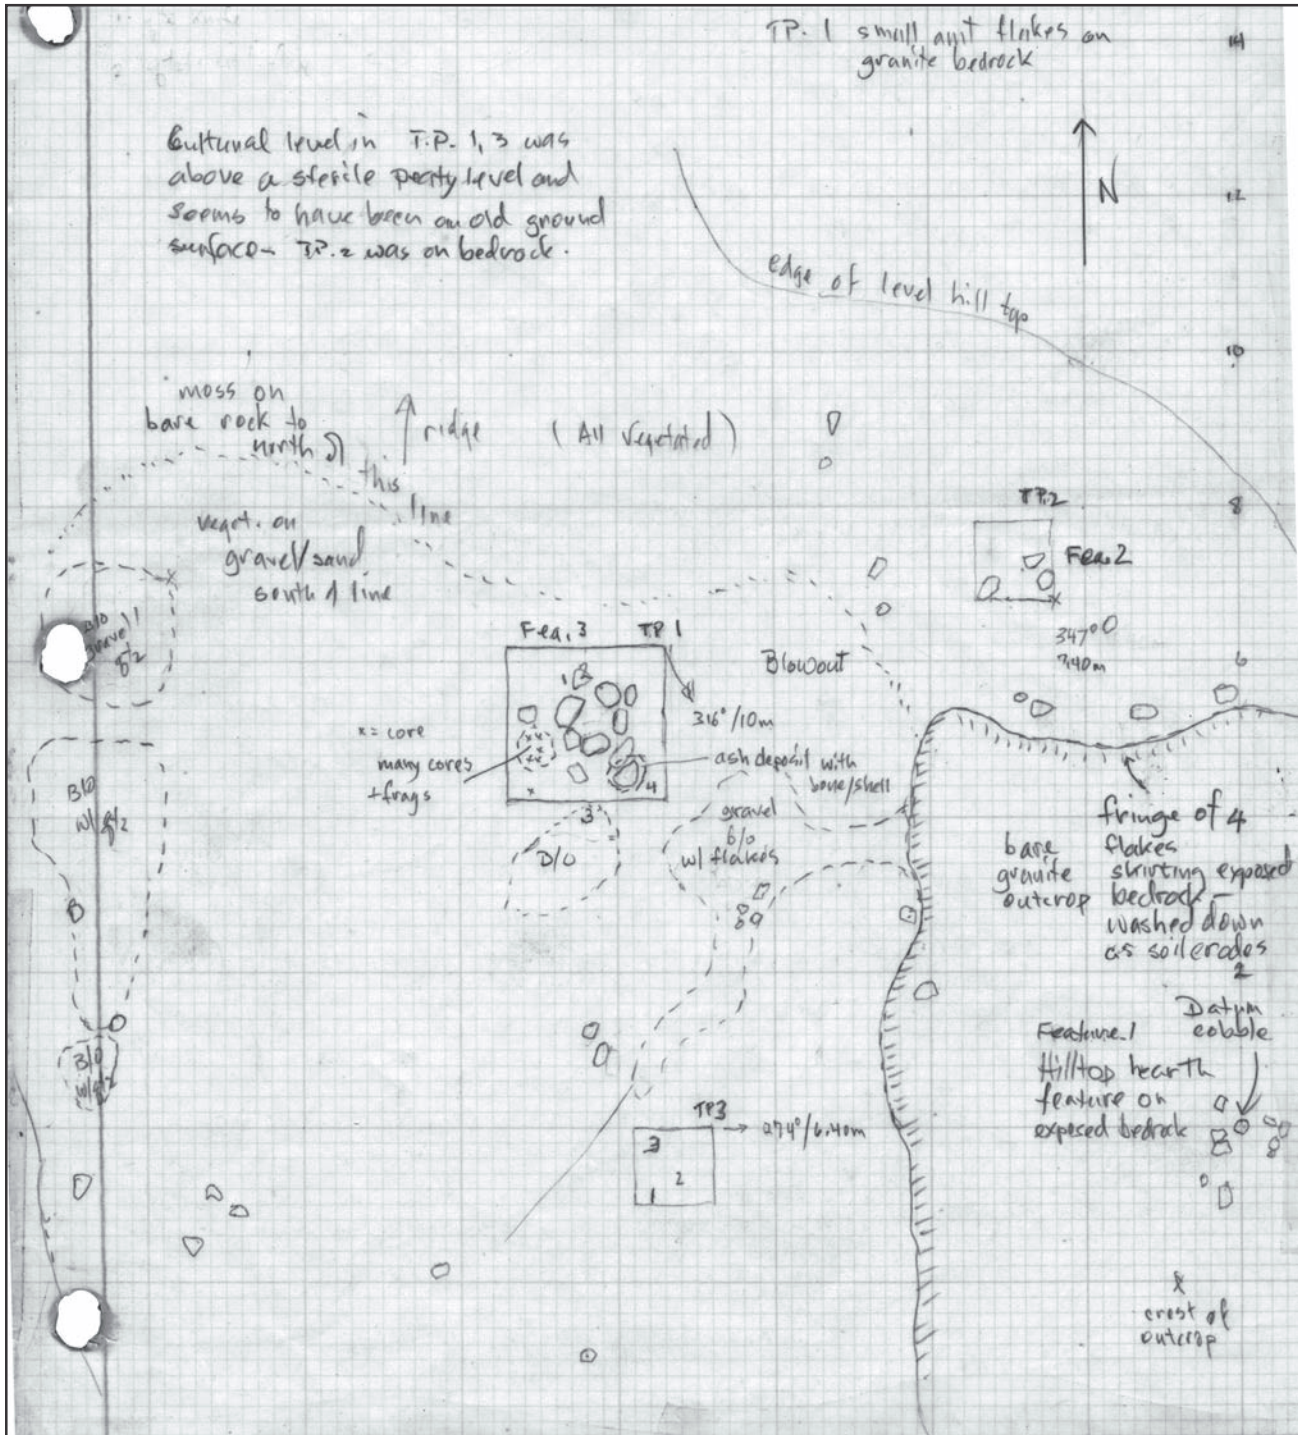 TP. 1 small amt flakes on
granite bedrock
14
Cultural level in T.P. 1, 3 was
above a sterile peaty level and
seems to have been an old ground
surface - T.P. 2 was on bedrock.
N
12
edge of level hill top
10
moss on
bare rock to
north of
this
line
ridge (All Vegetated)
veget. on
gravel/sand
south of line
TP2
8
Fea. 2
B/O
gravel
Fea. 3 TP 1
347°
7.40m
6
Blowout
316°/10m
1 2
x = core
many cores
+ frags
x x
x x
x x
x
4
3
ash deposit with
bone/shell
gravel
b/o
w/ flakes
B/O
B/O
w/
fringe of 4
flakes
skirting exposed
bedrock -
washed down
as soil erodes
2
bare
granite
outcrop
B/O
Datum
cobble
Feature 1
Hilltop hearth
feature on
exposed bedrock
TP3
274°/6.40m
3
2
1
x
crest of
outcrop